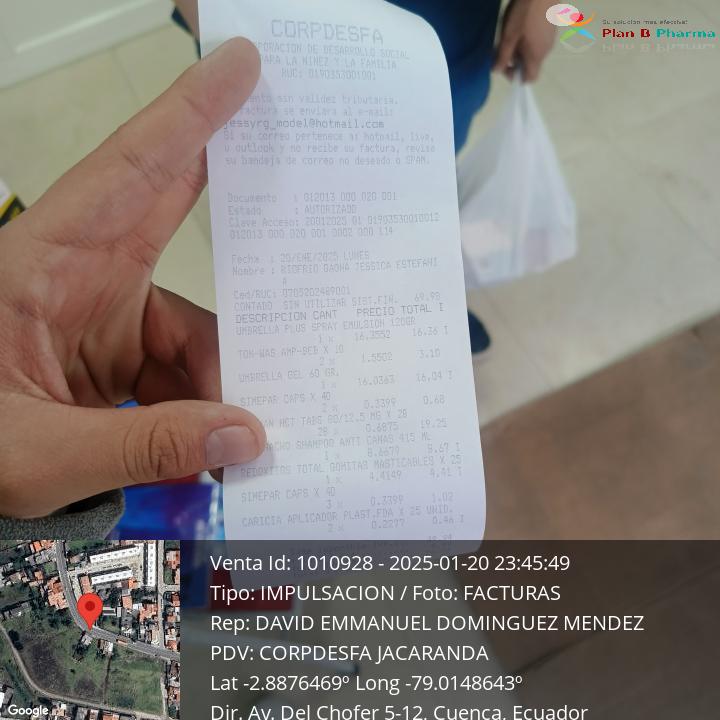 Su solución mas efectiva!
Plan B Pharma
CORPDESFA
CORPORACION DE DESARROLLO SOCIAL
PARA LA NIÑEZ Y LA FAMILIA
RUC: 0190353001001
sin validez tributaria.
factura se enviara al e-mail:
jessyrg_model@hotmail.com
Si su correo pertenece a: hotmail, live,
u outlook y no recibe su factura, revise
su bandeja de correo no deseado o SPAM.
Documento : 012013 000 020 001
Estado : AUTORIZADO
Clave Acceso: 20012025 01 01903530010012
012013 000 020 001 0002 000 114
Fecha : 20/ENE/2025 LUNES
Nombre : RIOFRIO GAONA JESSICA ESTEFANI
A
Ced/RUC: 0705202489001
CONTADO SIN UTILIZAR SIST.FIN. 69.98
DESCRIPCION CANT PRECIO TOTAL I
UMBRELLA PLUS SPRAY EMULSION 120GR
1 x 16.3552 16.36 I
TON-WAS AMP-BEB X 10
2 x 1.5502 3.10
UMBRELLA GEL 60 GR.
1 x 16.0363 16.04 I
SIMEPAR CAPS X 40
2 x 0.3399 0.68
HCT TABS 80/12.5 MG X 28
28 x 0.6875 19.25
SHAMPOO ANTI CANAS 415 ML
1 x 8.6679 8.67 I
REDOXITOS TOTAL GOMITAS MASTICABLES X 25
1 x 4.4149 4.41 I
SIMEPAR CAPS X 40
3 x 0.3399 1.02
CARICIA APLICADOR PLAST.FDA X 25 UNID.
2 x 0.2277 0.46 I
Venta Id: 1010928 - 2025-01-20 23:45:49
Tipo: IMPULSACION / Foto: FACTURAS
Rep: DAVID EMMANUEL DOMINGUEZ MENDEZ
PDV: CORPDESFA JACARANDA
Lat -2.8876469º Long -79.0148643º
Dir. Av. Del Chofer 5-12, Cuenca, Ecuador
Google